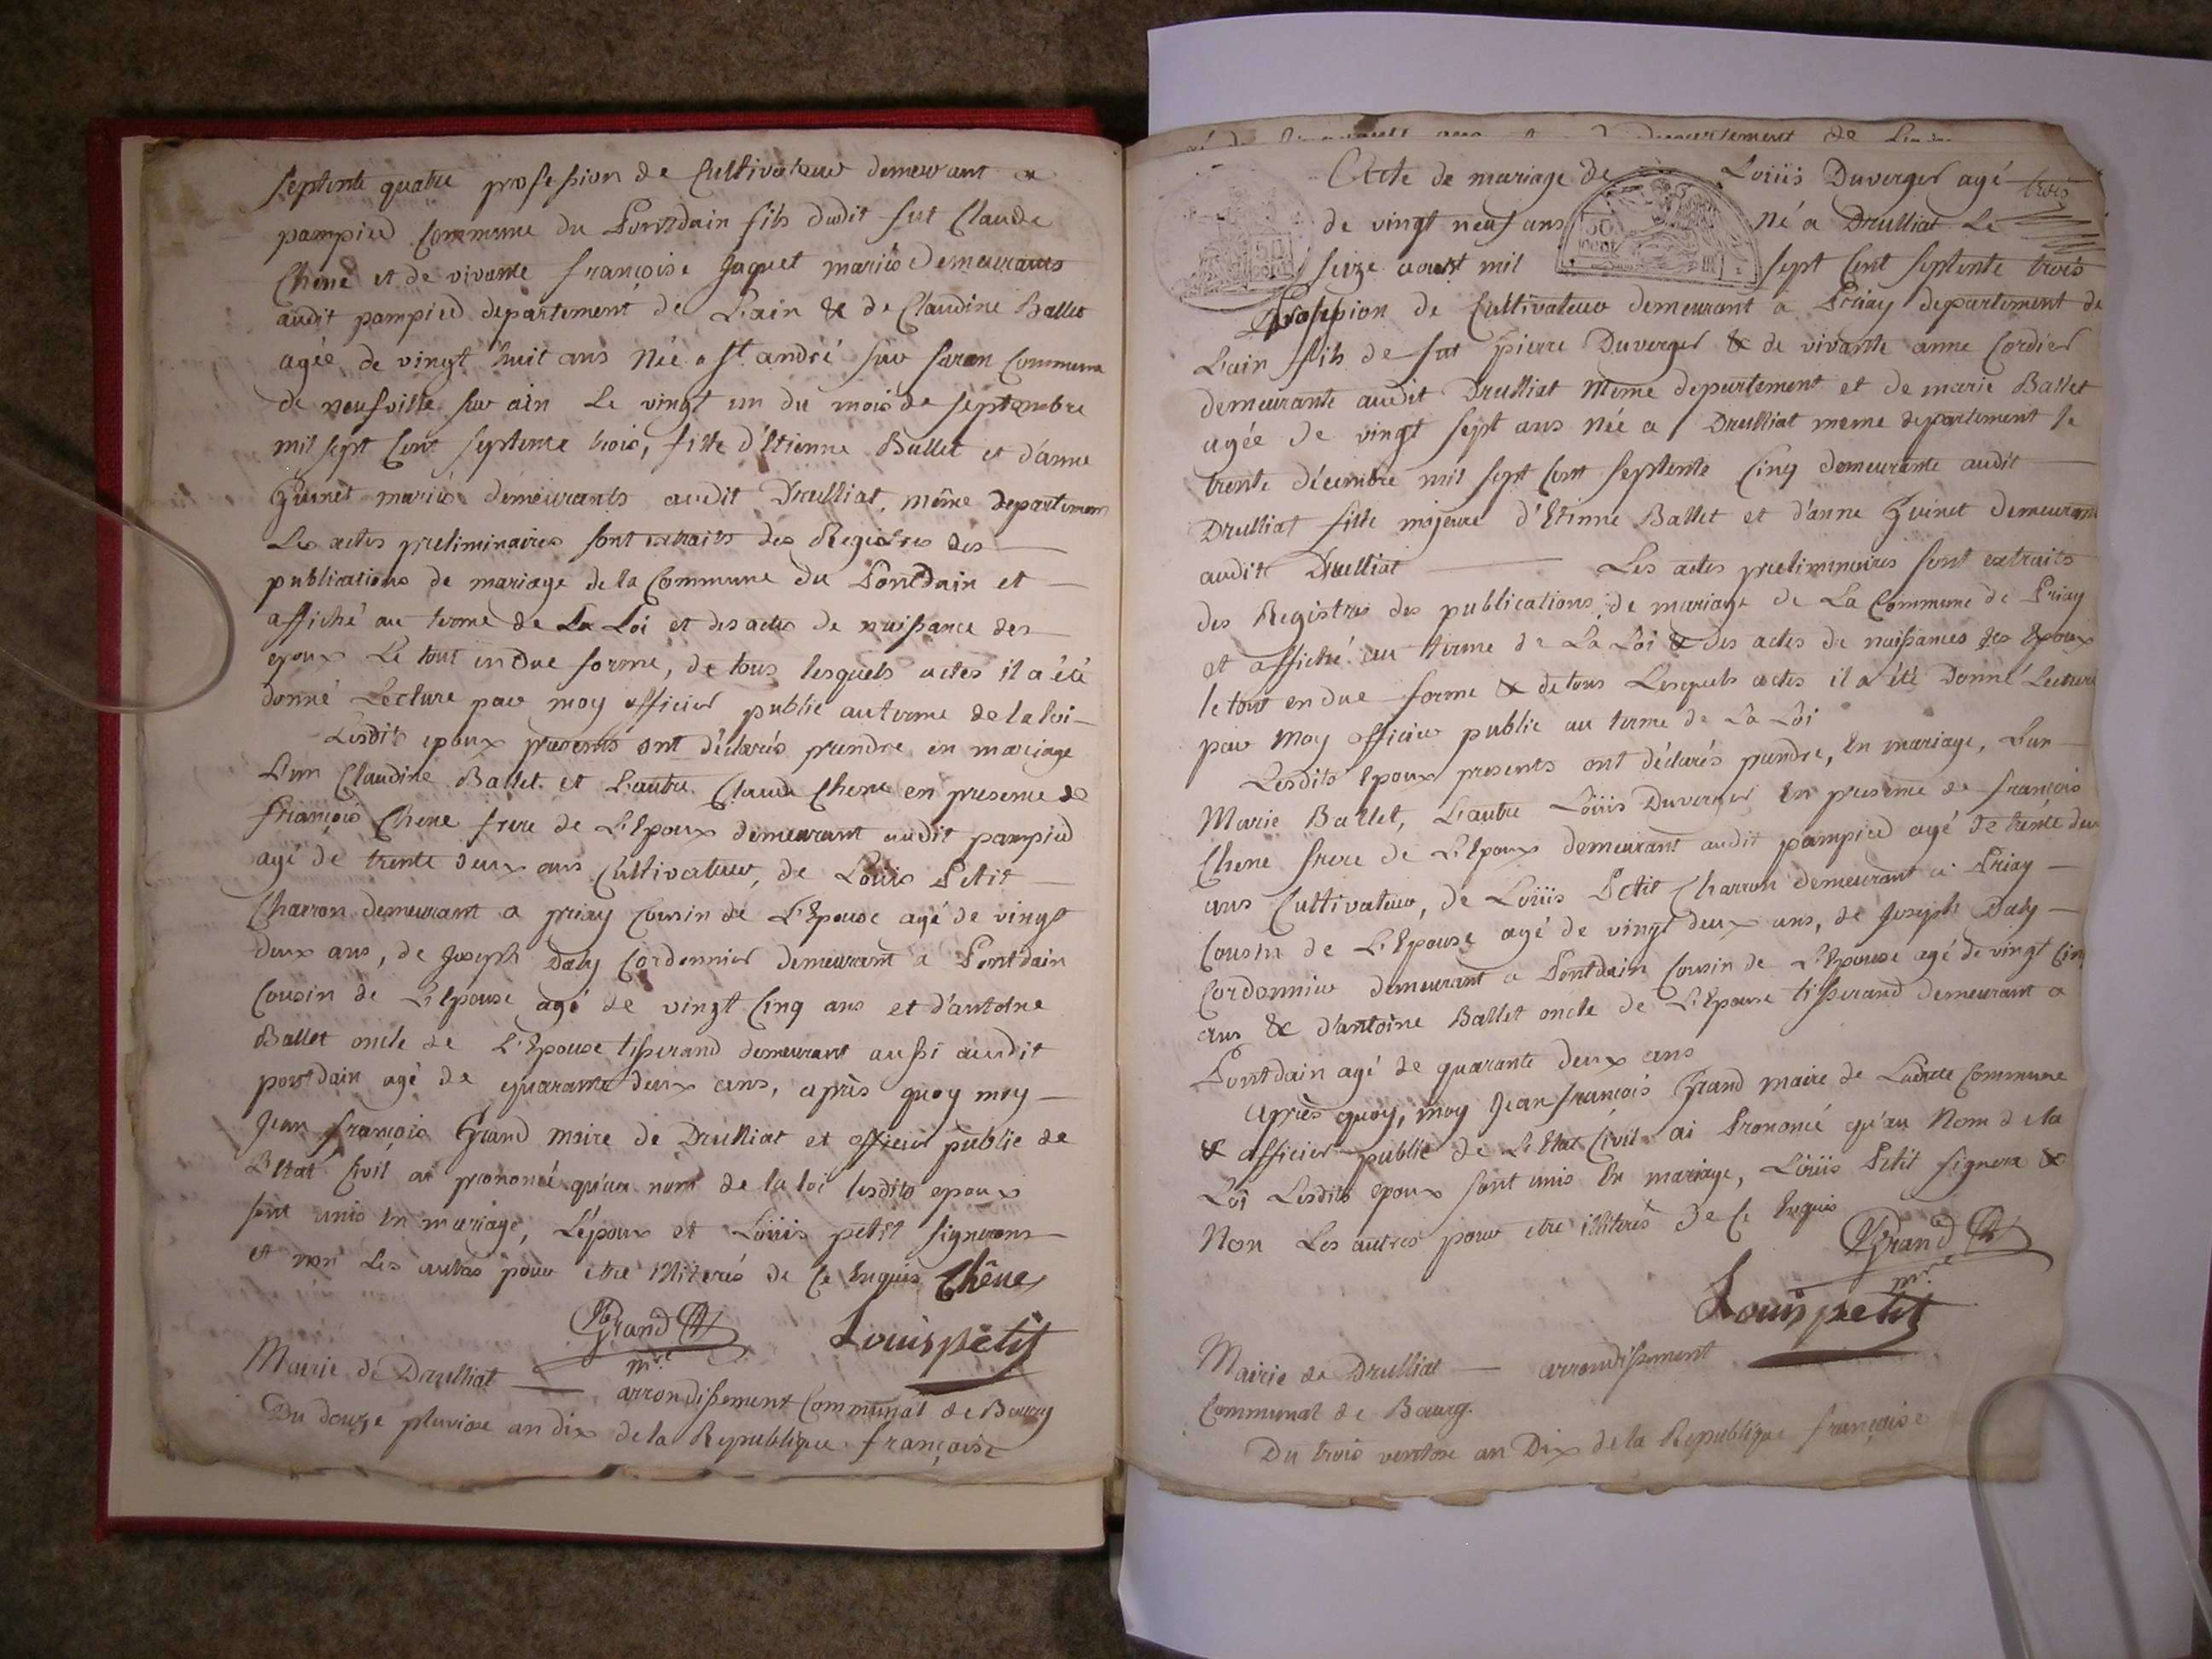 septente quatre profession de Cultivateur demeurant a
pampied Commune du Pontdain fils dudit fut Claude
Chêne et de vivante françoise Jaquet mariés demeurants
audit pampied departement de L'ain & de Claudine Ballet
agée de vingt huit ans Née a St. andré sur suran Commune
de neufville sur ain Le vingt un du mois de septembre
mil sept Cent septente trois, fille d'Etienne Ballet et d'anne
Guinet mariés demeurants audit Drulliat, même departement
Les actes preliminaires sont extraits des Registres des
publications de mariage de la Commune du Pontdain et
affiché au terme de La Loi et des actes de naissance des
epoux Le tout en due forme, de tous lesquels actes il a été
donné Lecture par moy officier public au terme de la loi
Lesdits epoux presents ont déclarés prendre en mariage
L'un Claudine Ballet et L'autre Claude Chene en presence de
françois Chene frere de L'Epoux demeurant audit pampied
agé de trente deux ans Cultivateur, de Louis Petit
Charron demeurant a priay Cousin de L'Epouse agé de vingt
deux ans, de Joseph Daly Cordonnier demeurant a Pontdain
Cousin de L'Epouse agé de vingt Cinq ans et d'antoine
Ballet oncle de L'Epouse tisserand demeurant aussi audit
pontdain agé de quarante deux ans, après quoy moy
Jean françois Grand maire de Drulliat et officier public de
L'Etat Civil ai prononcé qu'au nom de la loi lesdits epoux
sont unis En mariage, L'époux et Loüis petit signerons
et non Les autres pour etre illiterés de Ce Enquis Chêne
Grand
mre
Louis petit
Mairie de Drulliat arrondissement Communal de Bourg
Du douze pluviose an dix de la Republique française
departement de L'ain
Acte de mariage de Loüis Duverger agé trois
de vingt neuf ans né a Drulliat Le
50
seize aoust mil sept Cent septente trois
Profession de Cultivateur demeurant a Priay departement de
L'ain fils de fut pierre Duverger & de vivante anne Cordier
demeurante audit Drulliat Même departement et de marie Ballet
agée de vingt sept ans née a Drulliat meme departement le
trente décembre mil sept Cent septente Cinq demeurante audit
Drulliat fille majeure d'Etienne Ballet et d'anne Guinet demeurant
audit Drulliat Les actes preliminaires sont extraits
des Registres des publications de mariage de La Commune de Priay
et affiché au terme de La Loi & des actes de naissances des Epoux
le tout en due forme & de tous Lesquels actes il a été Donné Lecture
par Moy officier public au terme de La Loi
Lesdits Epoux presents ont déclarés prendre, En mariage, L'un
Marie Ballet, L'autre Loüis Duverger En presence de françois
Chene frere de L'Epoux demeurant audit pampied agé de trente deux
ans Cultivateur, de Loüis Petit Charron demeurant a Priay
Cousin de L'Epouse agé de vingt deux ans, de Joseph Daly
Cordonnier demeurant a Pontdain Cousin de L'Epouse agé de vingt Cinq
ans & d'antoine Ballet oncle de L'Epouse tisserand demeurant a
Pontdain agé de quarante deux ans
après quoy, moy Jean françois Grand maire de Ladite Commune
& officier public de L'Etat Civil ai Prononcé qu'au Nom de la
Loi Lesdits epoux sont unis En mariage, Loüis Petit signera &
Non Les autres pour etre illiterés de Ce Enquis
Grand
mre
Louis petit
Mairie de Drulliat arrondissement
Communal de Bourg.
Du trois ventose an Dix de la Republique française